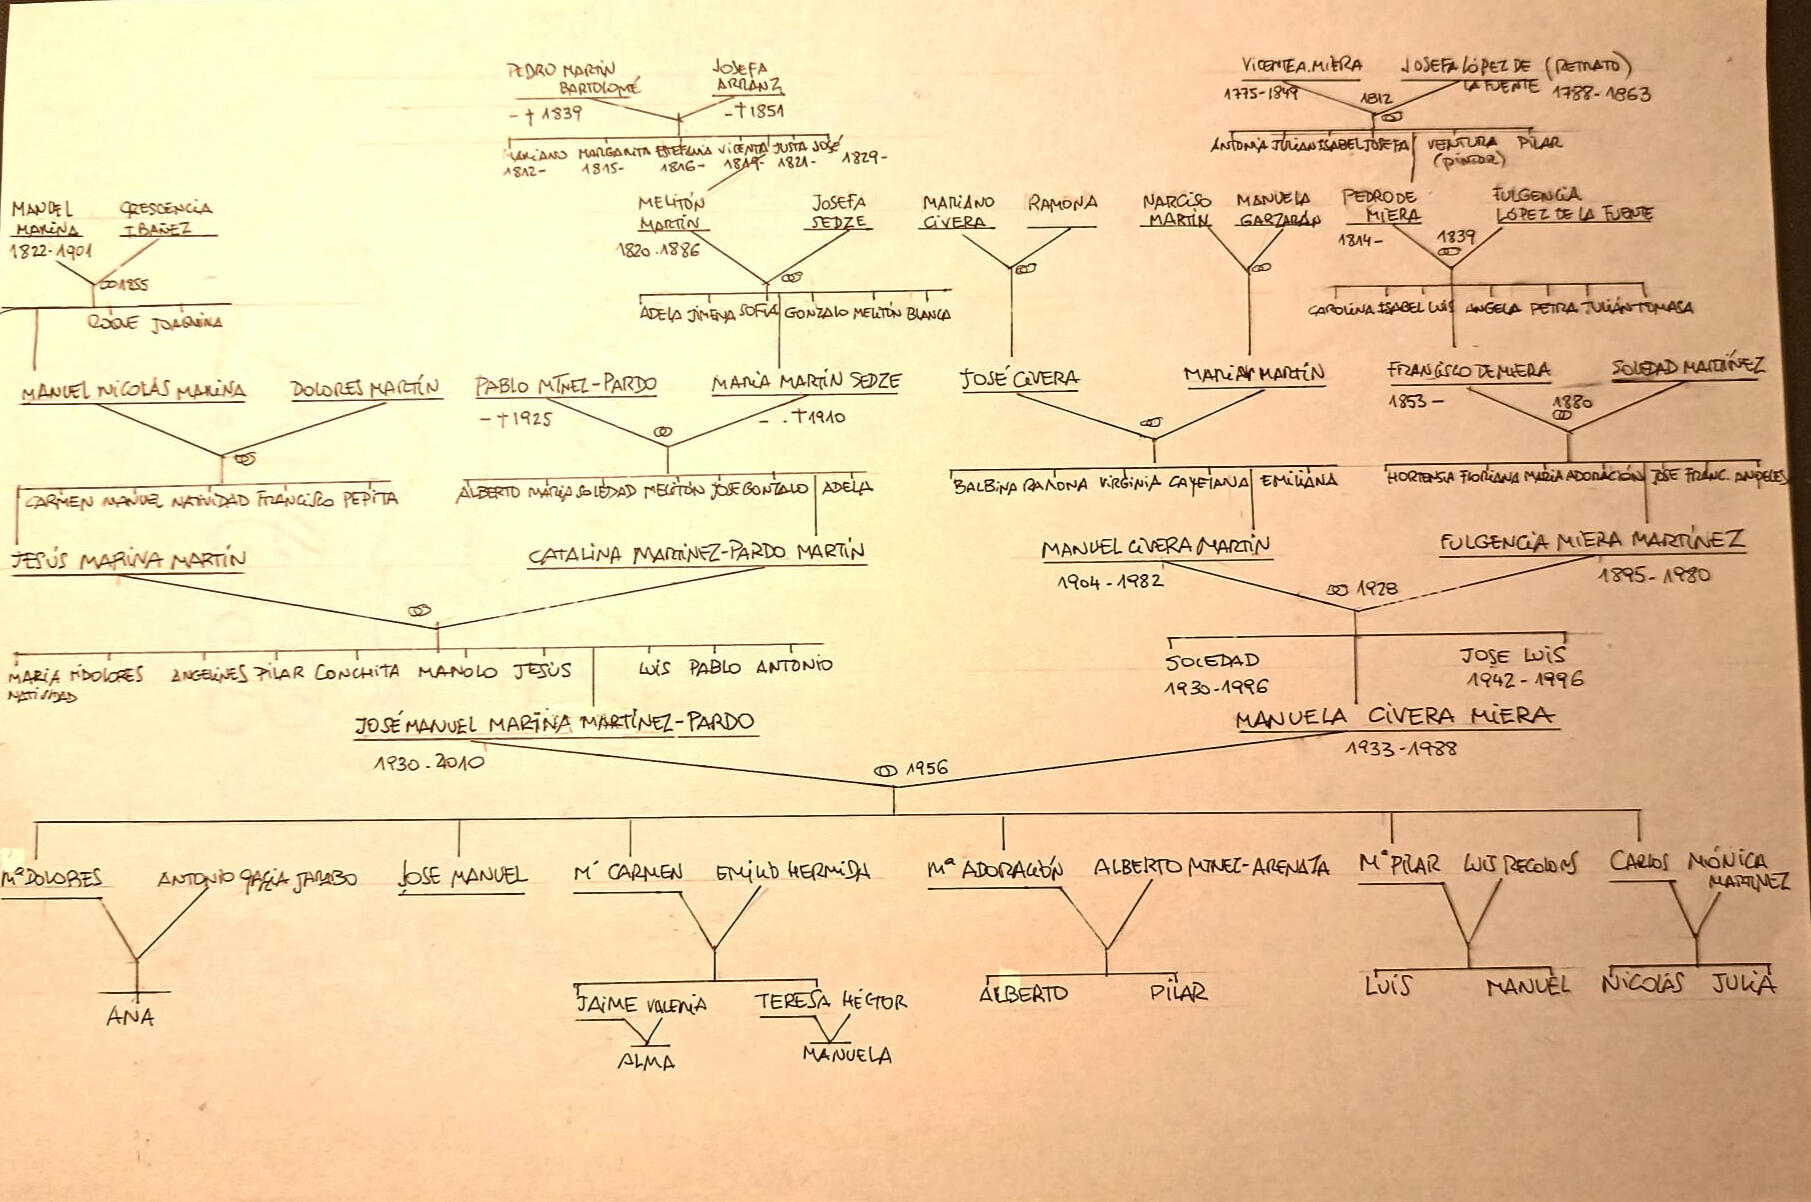 PEDRO MARTÍN BARTOLOMÉ
JOSEFA ARRANZ
VICENTE A. MIERA
JOSEFA LÓPEZ DE LA FUENTE (RETRATO)
- † 1839
- † 1851
1775-1849
1812
1788-1863
MARIANO MARGARITA ESTEFANIA VICENTA JUSTA JOSÉ
1812- 1815- 1816- 1819- 1821- 1829-
ANTONIA JULIAN ISABEL JOSEFA VENTURA (PINTOR) PILAR
MANUEL MARINA
CRESCENCIA IBAÑEZ
MELITÓN MARTÍN
JOSEFA SEDZE
MARIANO CIVERA
RAMONA
NARCISO MARTÍN
MANUELA GARZARÁN
PEDRO DE MIERA
FULGENCIA LÓPEZ DE LA FUENTE
1822-1901
1820-1886
1814-
1839
1855
ROQUE JOAQUINA
ADELA JIMENA SOFÍA GONZALO MELITÓN BLANCA
CAROLINA ISABEL LUIS ANGELA PETRA JULIÁN TOMASA
MANUEL NICOLÁS MARINA
DOLORES MARTÍN
PABLO MTNEZ-PARDO
MARIA MARTÍN SEDZE
JOSÉ CIVERA
MARIA MARTÍN
FRANCISCO DE MIERA
SOLEDAD MARTÍNEZ
- † 1925
- † 1910
1853 -
1880
CARMEN MANUEL NATIVIDAD FRANCISCO PEPITA
ALBERTO MARÍA SOLEDAD MELITÓN JOSE GONZALO ADELA
BALBINA RAMONA VIRGINIA CAYETANA EMILIANA
HORTENSIA FLORIANA MARIA ADORACIÓN JOSE FRANC. ANGELES
JESÚS MARINA MARTÍN
CATALINA MARTINEZ-PARDO MARTÍN
MANUEL CIVERA MARTÍN
FULGENCIA MIERA MARTÍNEZ
1904-1982
1895-1980
1928
MARÍA NATIVIDAD Mª DOLORES ANGELINES PILAR CONCHITA MANOLO JESÚS LUIS PABLO ANTONIO
SOLEDAD
1930-1996
JOSE LUIS
1942-1996
JOSÉ MANUEL MARINA MARTÍNEZ-PARDO
MANUELA CIVERA MIERA
1930-2010
1933-1988
1956
Mª DOLORES
ANTONIO GARCÍA JARABO
JOSE MANUEL
Mª CARMEN
EMILIO HERMIDA
Mª ADORACIÓN
ALBERTO MTNEZ-ARENAZA
Mª PILAR
LUIS RECOLONS
CARLOS
MÓNICA MARTINEZ
ANA
JAIME VALENIA
TERESA HÉCTOR
ALBERTO PILAR
LUIS MANUEL
NICOLÁS JULIA
ALMA
MANUELA